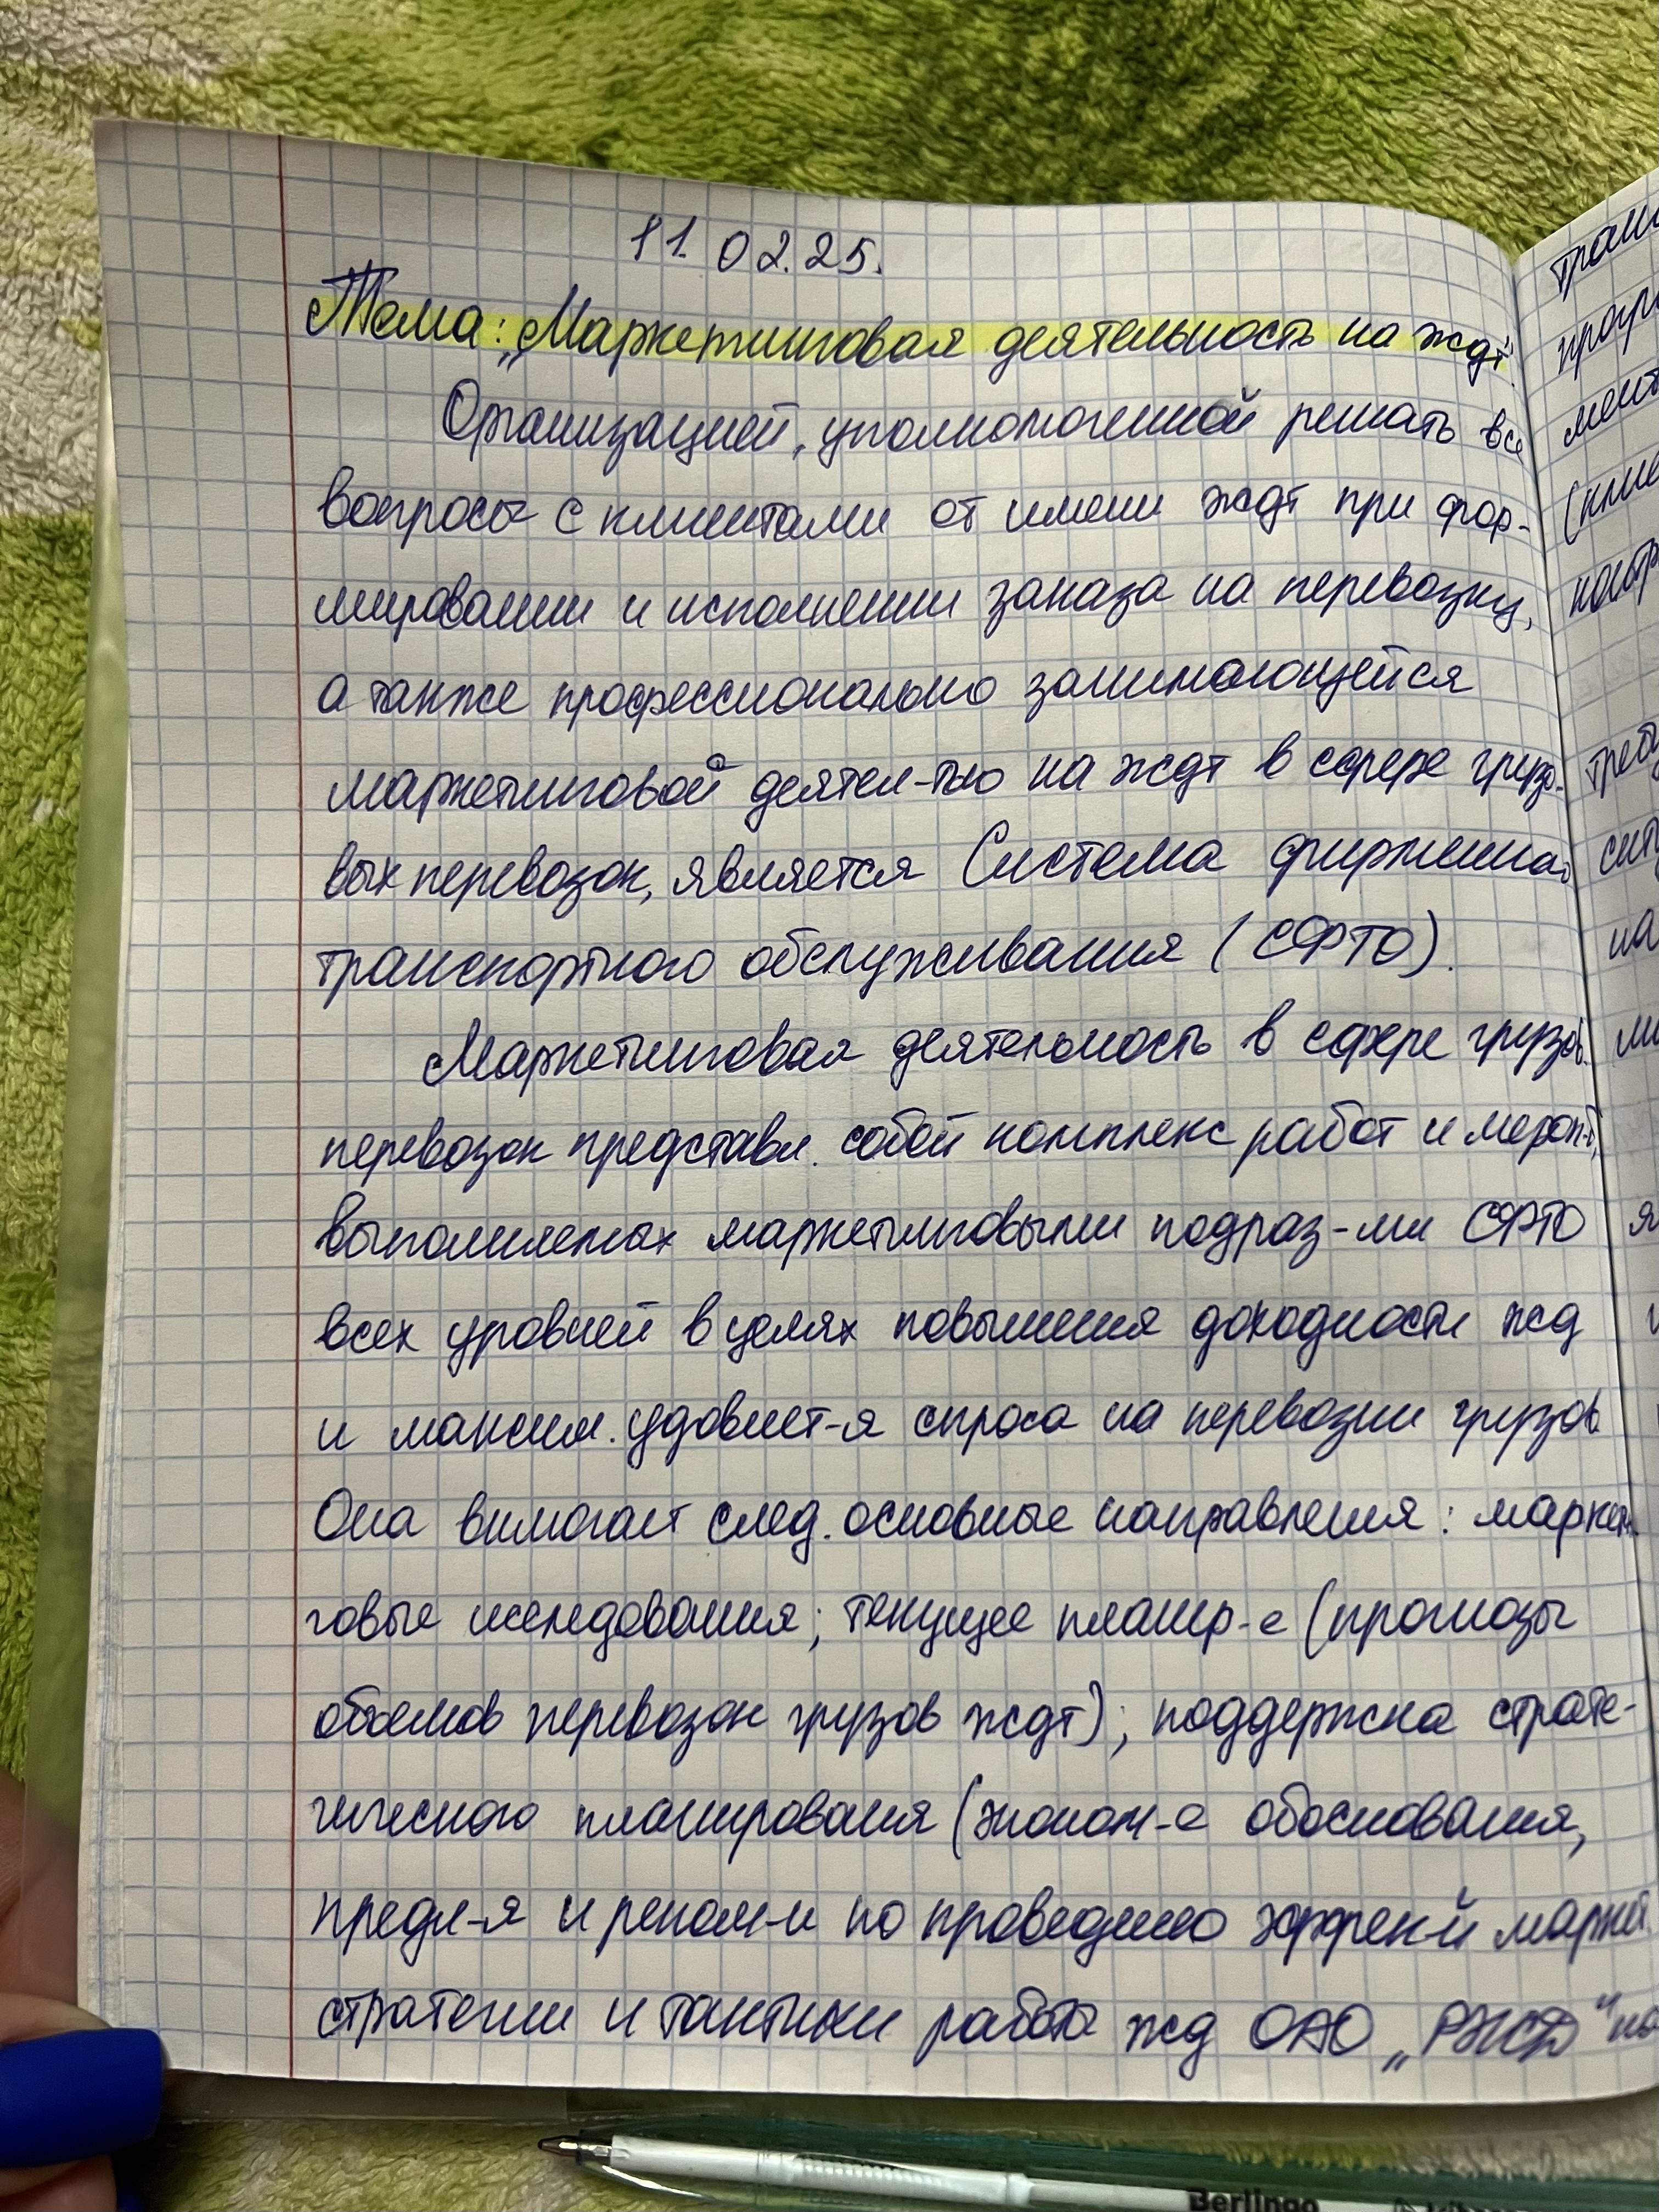 11.02.25.
Тема: „Маркетинговая деятельность на ждт"
Организацией, уполномоченной решать все
вопросы с клиентами от имени ждт при фор-
мировании и исполнении заказа на перевозку,
а также профессионально занимающейся
маркетинговой деятел-тью на ждт в сфере грузо-
вых перевозок, является Система фирменно
транспортного обслуживания (СФТО).
Маркетинговая деятельность в сфере грузов.
перевозок представл. собой комплекс работ и мероп-й,
выполняемых маркетинговыми подраз-ми СФТО
всех уровней в целях повышения доходности жд
и максим. удовлет-я спроса на перевозки грузов
Она вкл­ючает след. основные направления: маркет
говые исследования; текущее планир-е (прогнозы
объемов перевозок грузов ждт); поддержка страте-
гического планирования (эконом-е обоснования,
предл-я и реком-и по проведению эффек-й марке
стратегии и тактики работы жд ОАО „РЖД" на
тран
прогр
мент
(клие
конт
треб
сит
на
ми
я
Berlingo